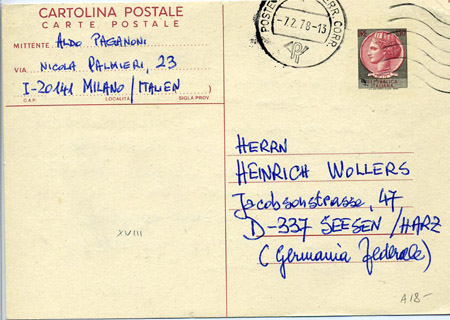 CARTOLINA POSTALE
CARTE POSTALE
MITTENTE: ALDO PAGANONI
VIA NICOLA PALMIERI, 23
I-20141 MILANO/ITALIEN
C.A.P. LOCALITÀ SIGLA PROV.
POSTE CORR.
-7.2.78-13
PT
REPUBBLICA
ITALIANA
HERRN
HEINRICH WOLLERS
Jacobsonstrasse, 47
D-337 SEESEN/HARZ
(Germania Federale)
XVIII
A18-